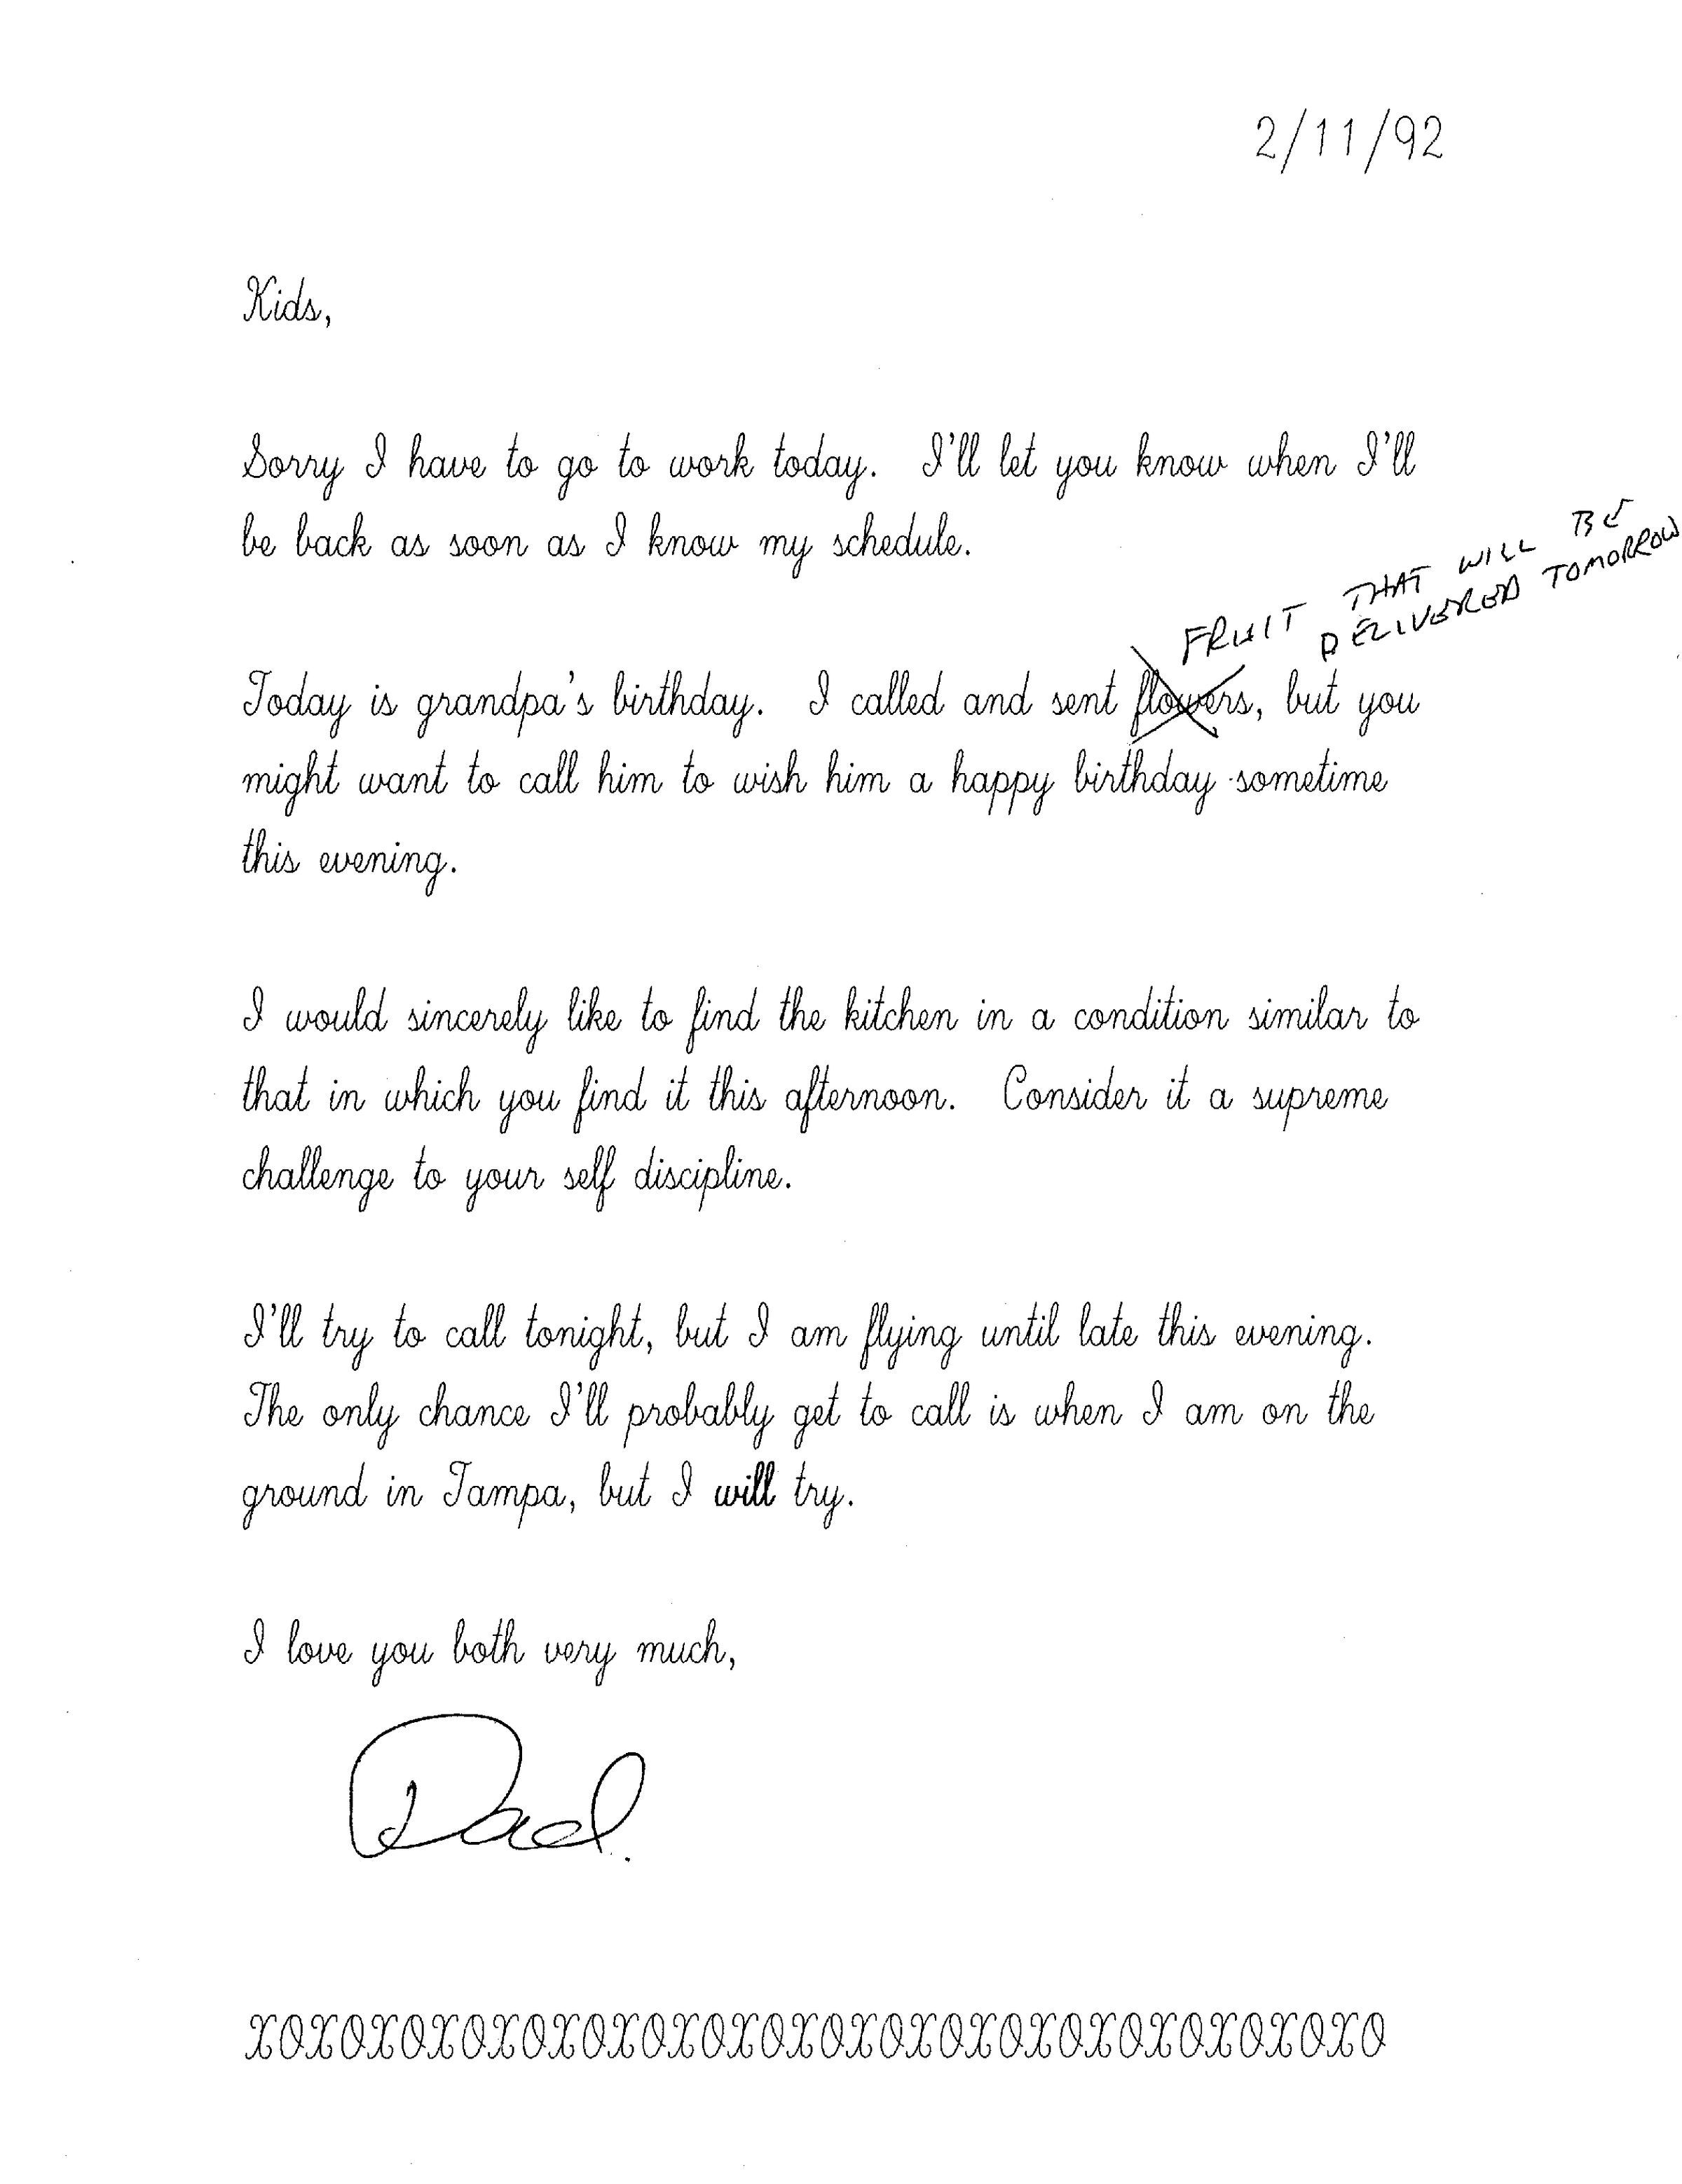 2/11/92
Kids,
Sorry I have to go to work today. I'll let you know when I'll
be back as soon as I know my schedule.
FRUIT THAT WILL BE
DELIVERED TOMORROW
Today is grandpa's birthday. I called and sent flowers, but you
might want to call him to wish him a happy birthday sometime
this evening.
I would sincerely like to find the kitchen in a condition similar to
that in which you find it this afternoon. Consider it a supreme
challenge to your self discipline.
I'll try to call tonight, but I am flying until late this evening.
The only chance I'll probably get to call is when I am on the
ground in Tampa, but I will try.
I love you both very much,
Dad.
XOXOXOXOXOXOXOXOXOXOXOXOXOXOXOXOXOXOXO